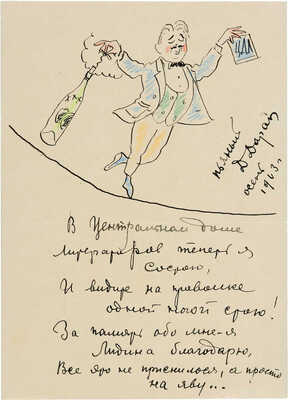 ЦДЛ
пьяный
Д Даран
осень
1963 г
В Центральном доме
литераторов теперь я
состою,
И видите на проволоке
одной ноги строю!
За память обо мне-я
Лидина благодарю,
Все это не приснилося, а просто
на яву...